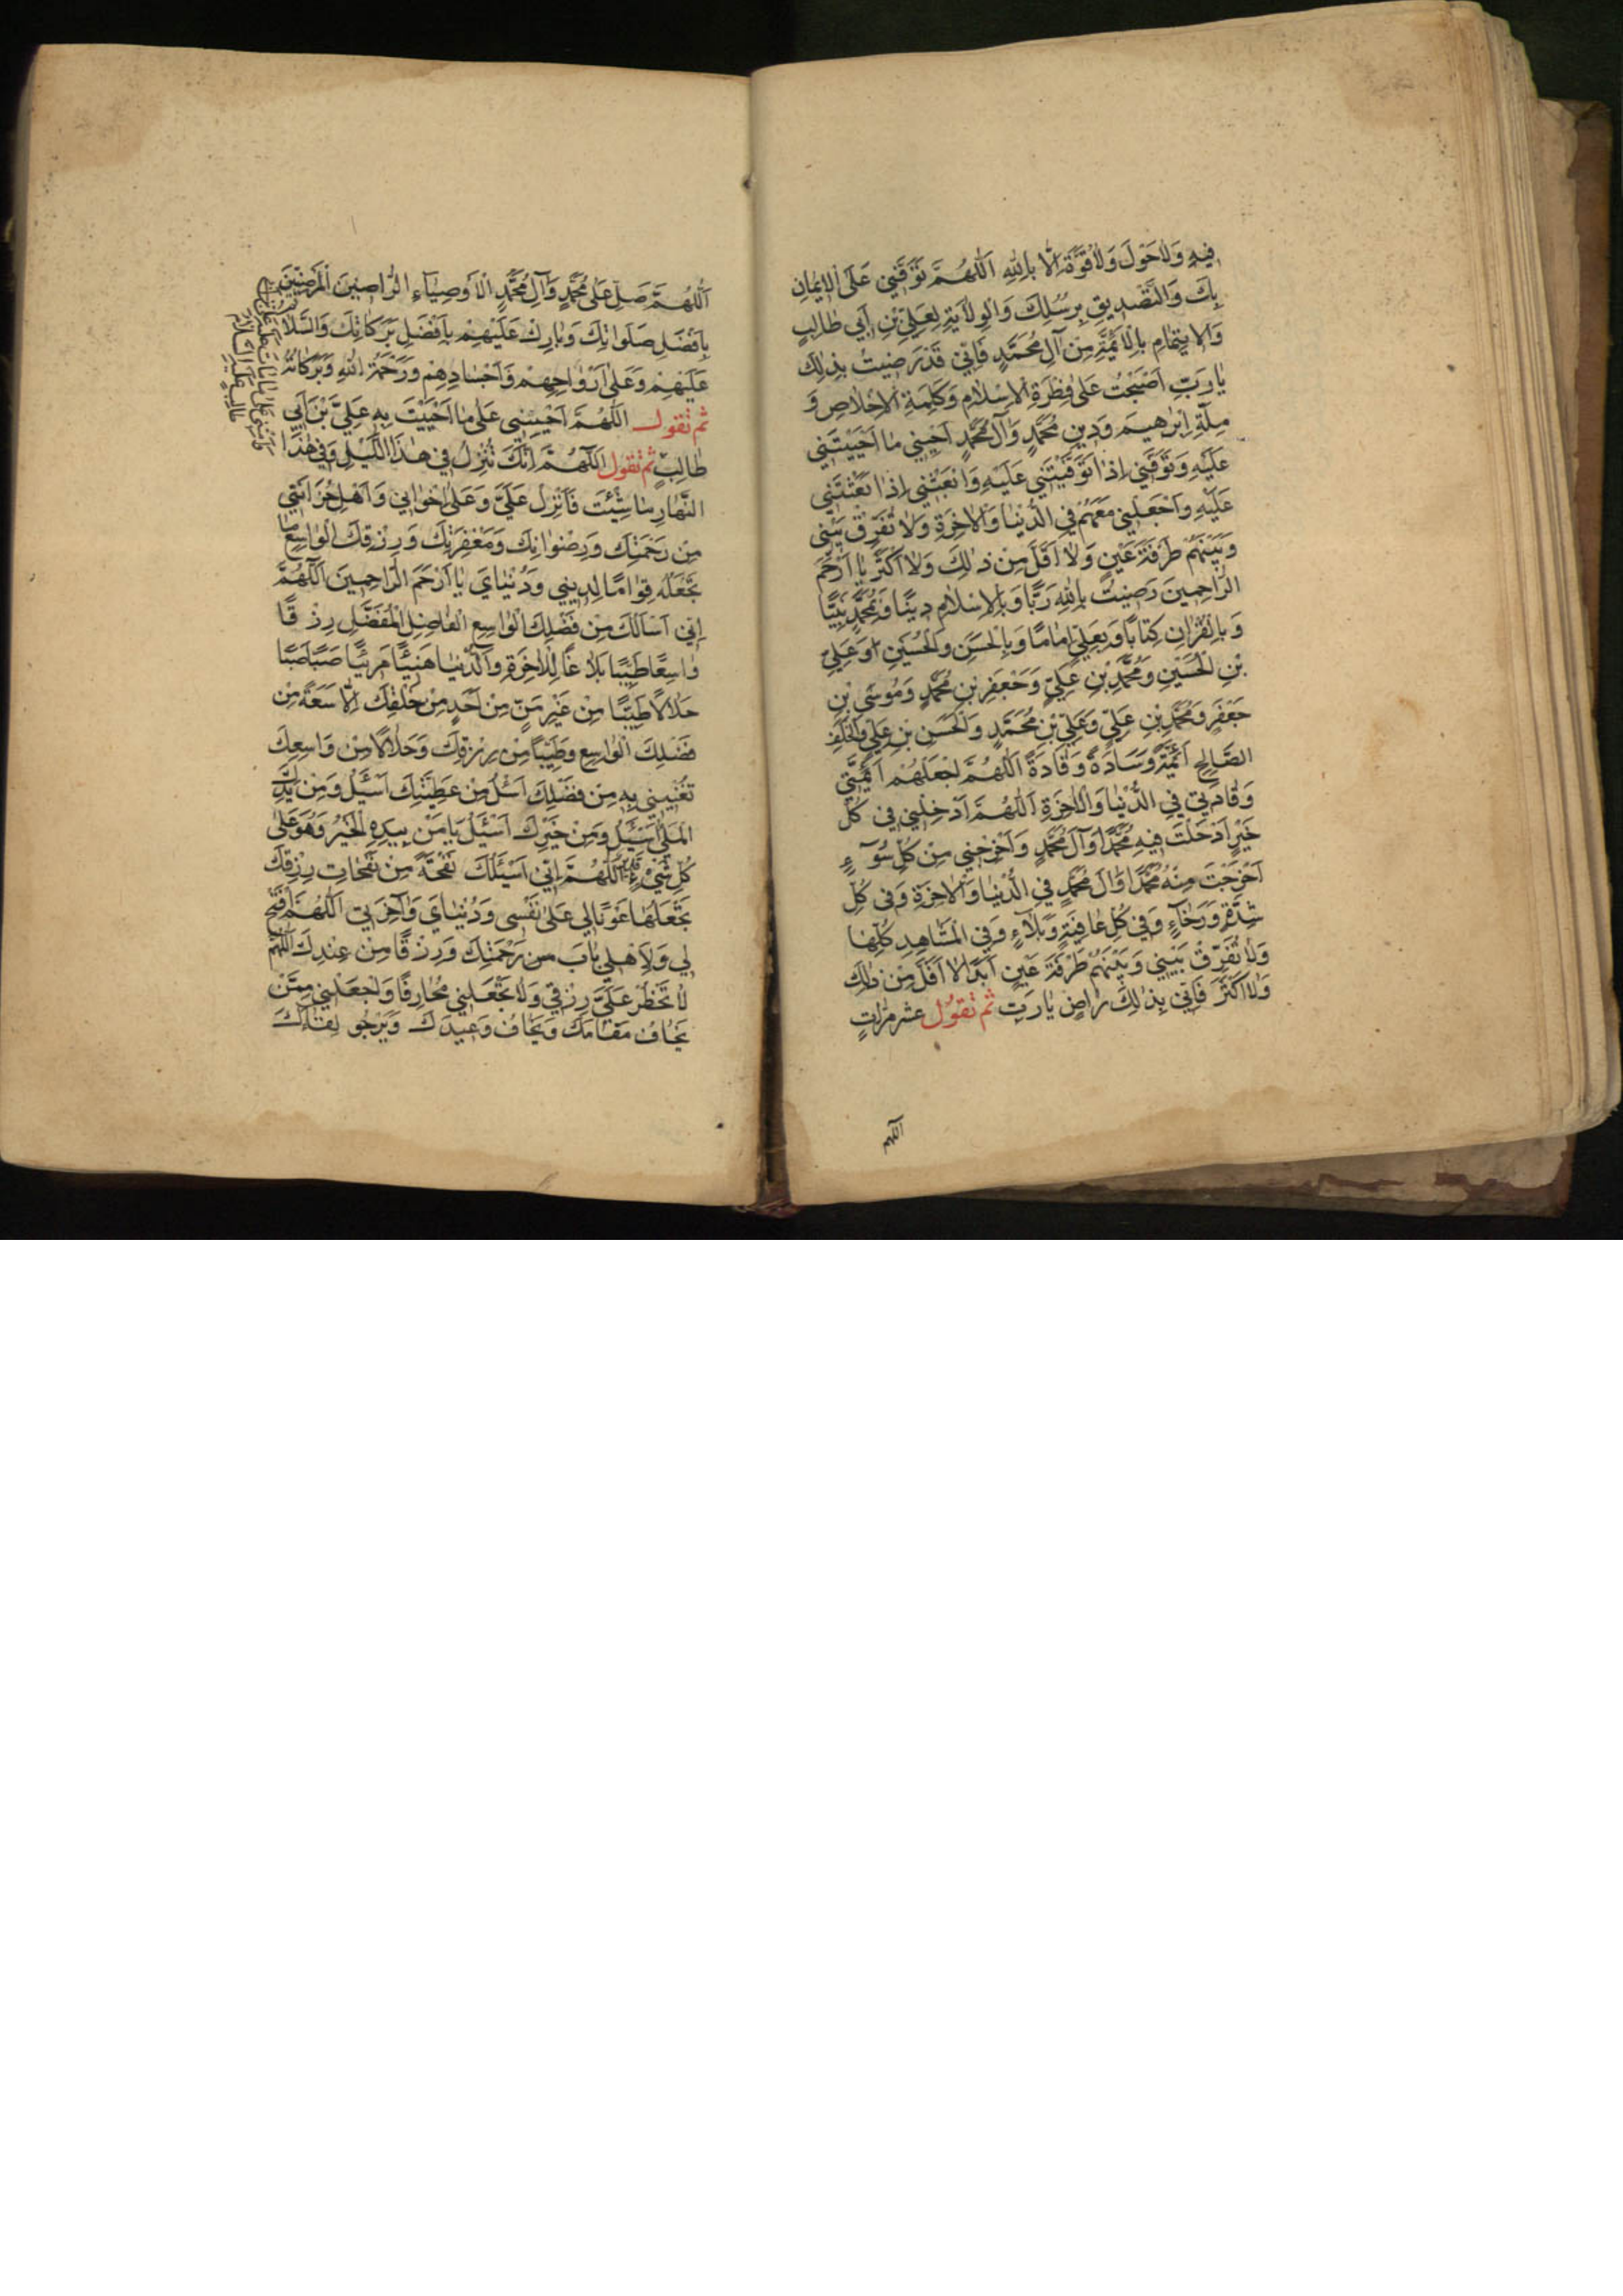 فِيهِ وَلاٰحَوْلَ وَلاٰ قُوَّةَ اِلّٰا بِاللهِ اَللّٰهُمَّ تَوَفَّنِي عَلَى الْاِيمٰانِ
بِكَ وَالتَّصْدِيقِ بِرُسُلِكَ وَالْوِلاٰيَةِ لِعَلِيِّ بْنِ اَبِي طٰالِبٍ
وَالْاِيتِمٰامِ بِالْاَئِمَّةِ مِنْ آلِ مُحَمَّدٍ فَاِنِّي قَدْ رَضِيتُ بِذٰلِكَ
يٰا رَبِّ اَصْبَحْتُ عَلىٰ فِطْرَةِ الْاِسْلاٰمِ وَكَلِمَةِ الْاِخْلاٰصِ وَ
مِلَّةِ اِبْرٰهِيمَ وَدِينِ مُحَمَّدٍ وَآلِ مُحَمَّدٍ اَحْيِنِي مٰا اَحْيَيْتَنِي
عَلَيْهِ وَتَوَفَّنِي اِذٰا تَوَفَّيْتَنِي عَلَيْهِ وَابْعَثْنِي اِذٰا بَعَثْتَنِي
عَلَيْهِ وَاجْعَلْنِي مَعَهُمْ فِي الدُّنْيٰا وَالْاٰخِرَةِ وَلاٰ تُفَرِّقْ بَيْنِي
وَبَيْنَهُمْ طَرْفَةَ عَيْنٍ وَلاٰ اَقَلَّ مِنْ ذٰلِكَ وَلاٰ اَكْثَرَ يٰا اَرْحَمَ
الرّٰاحِمِينَ رَضِيتُ بِاللهِ رَبًّا وَبِالْاِسْلاٰمِ دِينًا وَبِمُحَمَّدٍ نَبِيًّا
وَبِالْقُرْاٰنِ كِتٰابًا وَبِعَلِيٍّ اِمٰامًا وَبِالْحَسَنِ وَالْحُسَيْنِ وَعَلِيِّ
بْنِ الْحُسَيْنِ وَمُحَمَّدِ بْنِ عَلِيٍّ وَجَعْفَرِ بْنِ مُحَمَّدٍ وَمُوسَى بْنِ
جَعْفَرٍ وَمُحَمَّدِ بْنِ عَلِيٍّ وَعَلِيِّ بْنِ مُحَمَّدٍ وَالْحَسَنِ بْنِ عَلِيٍّ وَالْخَلَفِ
الصّٰالِحِ اَئِمَّةً وَسٰادَةً وَقٰادَةً اَللّٰهُمَّ اجْعَلْهُمْ اَئِمَّتِي
وَقٰادَتِي فِي الدُّنْيٰا وَالْاٰخِرَةِ اَللّٰهُمَّ اَدْخِلْنِي فِي كُلِّ
خَيْرٍ اَدْخَلْتَ فِيهِ مُحَمَّدًا وَآلَ مُحَمَّدٍ وَاَخْرِجْنِي مِنْ كُلِّ سُوٓءٍ
اَخْرَجْتَ مِنْهُ مُحَمَّدًا وَآلَ مُحَمَّدٍ فِي الدُّنْيٰا وَالْاٰخِرَةِ وَفِي كُلِّ
شِدَّةٍ وَرَخٰاءٍ وَفِي كُلِّ عٰافِيَةٍ وَبَلاٰءٍ وَفِي الْمَشٰاهِدِ كُلِّهٰا
وَلاٰ تُفَرِّقْ بَيْنِي وَبَيْنَهُمْ طَرْفَةَ عَيْنٍ اَبَدًا لاٰ اَقَلَّ مِنْ ذٰلِكَ
وَلاٰ اَكْثَرَ فَاِنِّي بِذٰلِكَ رٰاضٍ يٰا رَبِّ ثم تقول عشر مرّاتٍ
اللّهم
اَللّٰهُمَّ صَلِّ عَلىٰ مُحَمَّدٍ وَآلِ مُحَمَّدٍ الْاَوْصِيٰاءِ الرّٰاضِينَ الْمَرْضِيِّينَ
بِاَفْضَلِ صَلَوٰاتِكَ وَبٰارِكْ عَلَيْهِمْ بِاَفْضَلِ بَرَكٰاتِكَ وَالسَّلاٰمُ
عَلَيْهِمْ وَعَلىٰ اَرْوٰاحِهِمْ وَاَجْسٰادِهِمْ وَرَحْمَةُ اللهِ وَبَرَكٰاتُهُ
ثم تقول اَللّٰهُمَّ اَحْيِنِي عَلىٰ مٰا اَحْيَيْتَ بِهِ عَلِيَّ بْنَ اَبِي
طٰالِبٍ ثم تقول اَللّٰهُمَّ اِنَّكَ تُنْزِلُ فِي هٰذَا اللَّيْلِ وَفِي هٰذَا
النَّهٰارِ مٰا شِئْتَ فَاَنْزِلْ عَلَيَّ وَعَلىٰ اِخْوٰانِي وَاَهْلِ حُزٰانَتِي
مِنْ رَحْمَتِكَ وَرِضْوٰانِكَ وَمَغْفِرَتِكَ وَرِزْقِكَ الْوٰاسِعِ مٰا
تَجْعَلُهُ قِوٰامًا لِدِينِي وَدُنْيٰايَ يٰا اَرْحَمَ الرّٰاحِمِينَ اَللّٰهُمَّ
اِنِّي اَسْاَلُكَ مِنْ فَضْلِكَ الْوٰاسِعِ الْفٰاضِلِ الْمُفَضَّلِ رِزْقًا
وٰاسِعًا طَيِّبًا بَلاٰغًا لِلْاٰخِرَةِ وَالدُّنْيٰا هَنِيئًا مَرِيئًا صَبًّا صَبًّا
حَلاٰلًا طَيِّبًا مِنْ غَيْرِ مَنٍّ مِنْ اَحَدٍ مِنْ خَلْقِكَ اِلّٰا سَعَةً مِنْ
فَضْلِكَ الْوٰاسِعِ وَطَيِّبًا مِنْ رِزْقِكَ وَحَلاٰلًا مِنْ وَاسِعِكَ
تُغْنِينِي بِهِ مِنْ فَضْلِكَ اَسْئَلُ مِنْ عَطِيَّتِكَ اَسْئَلُ وَمِنْ يَدِكَ
الْمَلْئٰ اَسْئَلُ وَمِنْ خَيْرِكَ اَسْئَلُ يَا مَنْ بِيَدِهِ الْخَيْرُ وَهُوَ عَلىٰ
كُلِّ شَيْءٍ قَدِيرٌ اَللّٰهُمَّ اِنِّي اَسْئَلُكَ نَفْحَةً مِنْ نَفَحٰاتِ رِزْقِكَ
تَجْعَلُهٰا عَوْنًا لِي عَلىٰ نَفْسِي وَدُنْيٰايَ وَآخِرَتِي اَللّٰهُمَّ افْتَحْ
لِي وَلِاَهْلِي بٰابَ مِنْ رَحْمَتِكَ وَرِزْقًا مِنْ عِنْدِكَ اَللّٰهُمَّ
لاٰ تَحْظُرْ عَلَيَّ رِزْقِي وَلاٰ تَجْعَلْنِي مُحٰارَفًا وَاجْعَلْنِي مِمَّنْ
يَخٰافُ مَقٰامَكَ وَيَخٰافُ وَعِيدَكَ وَيَرْجُو لِقٰاءَكَ
وَاَمِتْنِي عَلىٰ مٰا مٰاتَ عَلَيْهِ عَلِيُّ بْنُ اَبِي
طٰالِبٍ عَلَيْهِ السَّلاٰمُ